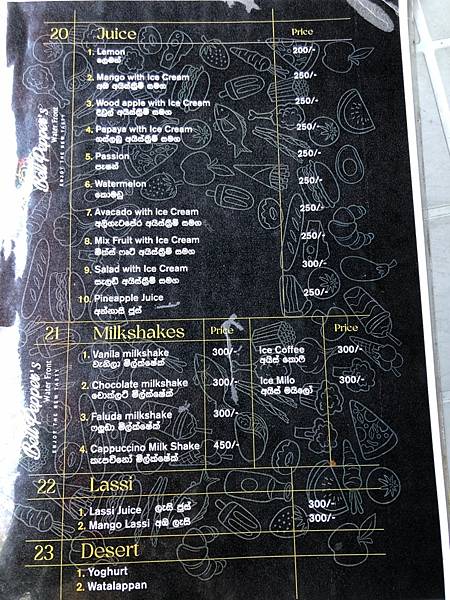 20 Juice Price
1. Lemon 200/-
ලෙමන්
2. Mango with Ice Cream 250/-
අඹ අයිස්ක්‍රීම් සමග
3. Wood apple with Ice Cream 250/-
දිවුල් අයිස්ක්‍රීම් සමග
4. Papaya with Ice Cream 250/-
ගස්ලබු අයිස්ක්‍රීම් සමග
5. Passion 250/-
පැෂන්
6. Watermelon 250/-
කොමඩු
7. Avacado with Ice Cream 250/-
අලිගැටපේර අයිස්ක්‍රීම් සමග
8. Mix Fruit with Ice Cream 250/-
මික්ස් ෆෲට් අයිස්ක්‍රීම් සමග
9. Salad with Ice Cream 300/-
සැලඩ් අයිස්ක්‍රීම් සමග
10. Pineapple Juice 250/-
අන්නාසි ජූස්
Bell Pepper's
Water Front
ENJOY THE NEW TASTE
21 Milkshakes Price Price
1. Vanila milkshake 300/- Ice Coffee 300/-
වැනිලා මිල්ක්ෂේක් අයිස් කොෆි
2. Chocolate milkshake 300/- Ice Milo 300/-
චොක්ලට් මිල්ක්ෂේක් අයිස් මයිලෝ
3. Faluda milkshake 300/-
ෆලූඩා මිල්ක්ෂේක්
4. Cappuccino Milk Shake 450/-
කැපචිනෝ මිල්ක්ෂේක්
Bell Pepper's
Water Front
ENJOY THE NEW TASTE
22 Lassi
1. Lassi Juice ලැසි ජූස් 300/-
2. Mango Lassi අඹ ලැසි 300/-
23 Desert
1. Yoghurt
2. Watalappan